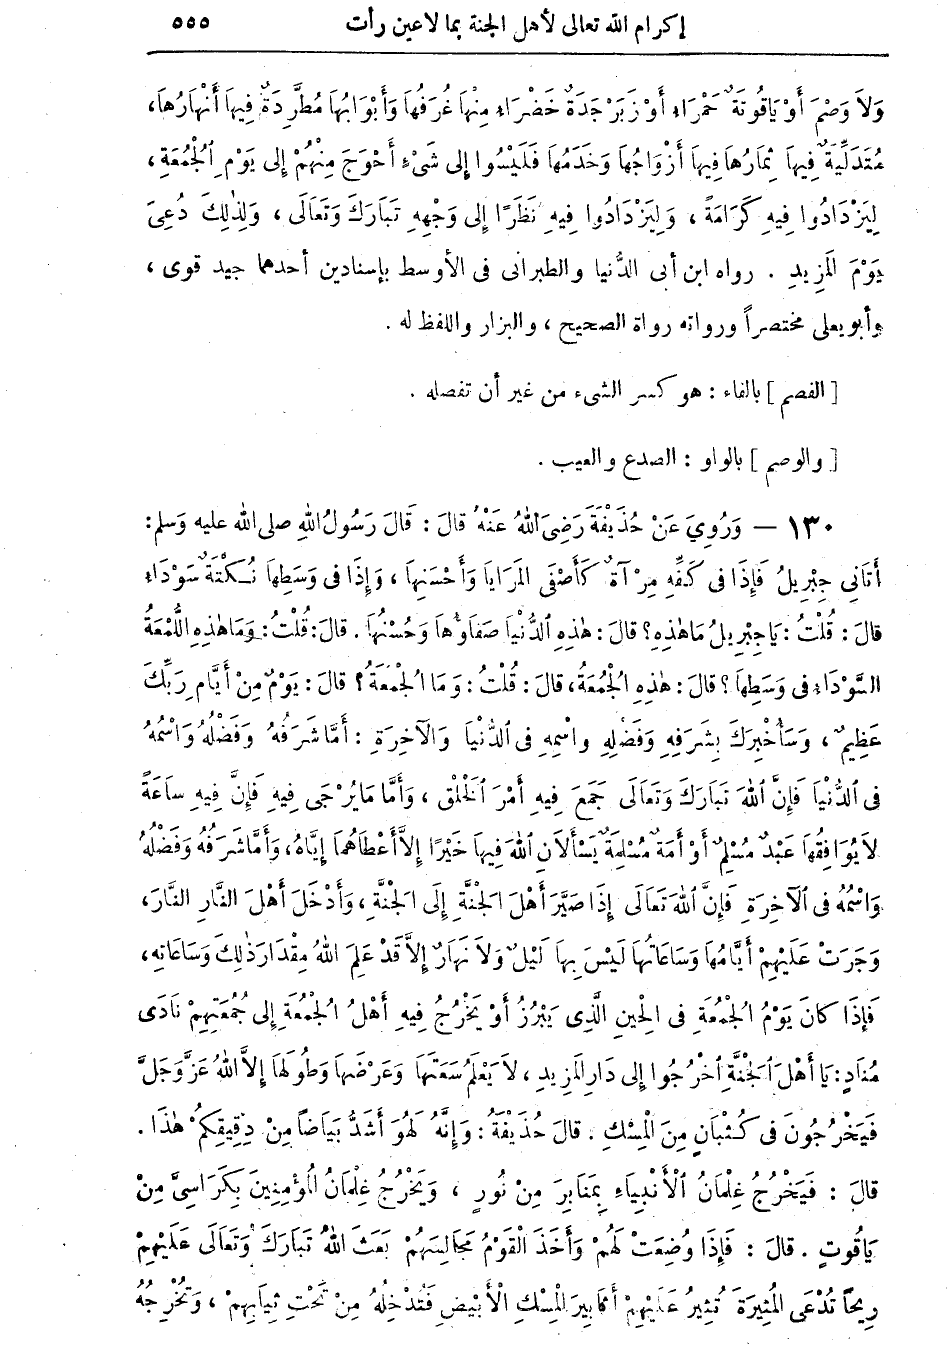 إكرام الله تعالى لأهل الجنة بما لا عين رأت ٥٥٥
وَلَا وَصْمَ أَوْ يَاقُوتَةٌ حَمْرَاءُ أَوْ زَبَرْجَدَةٌ خَضْرَاءُ مِنْهَا غُرَفُهَا وَأَبْوَابُهَا مُطَّرِدَةٌ فِيهَا أَنْهَارُهَا،
مُتَدَلِّيَةٌ فِيهَا ثِمَارُهَا فِيهَا أَزْوَاجُهَا وَخَدَمُهَا فَلَيْسُوا إِلَى شَيْءٍ أَحْوَجَ مِنْهُمْ إِلَى يَوْمِ الْجُمُعَةِ،
لِيَزْدَادُوا فِيهِ كَرَامَةً، وَلِيَزْدَادُوا فِيهِ نَظَرًا إِلَى وَجْهِهِ تَبَارَكَ وَتَعَالَى، وَلِذٰلِكَ دُعِيَ
يَوْمَ الْمَزِيدِ. رواه ابن أبى الدُّنيا والطبرانى فى الأوسط بإسنادين أحدهما جيد قوى،
وأبو يعلى مختصراً ورواته رواة الصحيح، والبزار واللفظ له.
[الفصم] بالفاء: هو كسر الشىء من غير أن تفصله.
[والوصم] بالواو: الصدع والعيب.
١٣٠ — وَرُوِيَ عَنْ حُذَيْفَةَ رَضِيَ اللهُ عَنْهُ قالَ: قَالَ رَسُولُ اللهِ صلى الله عليه وَسلم:
أَتَانِى جِبْرِيلُ فَإِذَا فى كَفِّهِ مِرْآةٌ كَأَصْفَى الْمَرَايَا وَأَحْسَنِهَا، وَإِذَا فى وَسَطِهَا نُكْتَةٌ سَوْدَاءُ
قالَ: قُلْتُ: يَا جِبْرِيلُ مَا هٰذِهِ؟ قالَ: هٰذِهِ الدُّنْيَا صَفَاؤُهَا وَحُسْنُهَا. قالَ: قُلْتُ: وَمَا هٰذِهِ اللُّمْعَةُ
السَّوْدَاءُ فى وَسَطِهَا؟ قالَ: هٰذِهِ الْجُمُعَةُ، قالَ: قُلْتُ: وَمَا الْجُمْعَةُ؟ قالَ: يَوْمٌ مِنْ أَيَّامِ رَبِّكَ
عَظِيمٌ، وَسَأُخْبِرُكَ بِشَرَفِهِ وَفَضْلِهِ وَاسْمِهِ فى الدُّنْيَا وَالْآخِرَةِ: أَمَّا شَرَفُهُ وَفَضْلُهُ وَاسْمُهُ
فى الدُّنْيَا فَإِنَّ اللهَ تَبَارَكَ وَتَعَالَى جَمَعَ فِيهِ أَمْرَ الْخَلْقِ، وَأَمَّا مَا يُرْجَى فِيهِ فَإِنَّ فِيهِ سَاعَةً
لَا يُوَافِقُهَا عَبْدٌ مُسْلِمٌ أَوْ أَمَةٌ مُسْلِمَةٌ يَسْأَلَانِ اللهَ فِيهَا خَيْرًا إِلَّا أَعْطَاهُمَا إِيَّاهُ، وَأَمَّا شَرَفُهُ وَفَضْلُهُ
وَاسْمُهُ فى الْآخِرَةِ فَإِنَّ اللهَ تَعَالَى إِذَا صَيَّرَ أَهْلَ الْجَنَّةِ إِلَى الْجَنَّةِ، وَأَدْخَلَ أَهْلَ النَّارِ النَّارَ،
وَجَرَتْ عَلَيْهِمْ أَيَّامُهَا وَسَاعَاتُهَا لَيْسَ بِهَا لَيْلٌ وَلَا نَهَارٌ إِلَّا قَدْ عَلِمَ اللهُ مِقْدَارَ ذٰلِكَ وَسَاعَاتِهِ،
فَإِذَا كَانَ يَوْمُ الْجُمْعَةِ فى الْحِينِ الَّذِى يَبْرُزُ أَوْ يَخْرُجُ فِيهِ أَهْلُ الْجُمْعَةِ إِلَى جُمُعَتِهِمْ نَادَى
مُنَادٍ: يَا أَهْلَ الْجَنَّةِ اخْرُجُوا إِلَى دَارِ الْمَزِيدِ، لَا يَعْلَمُ سَعَتَهَا وَعَرْضَهَا وَطُولَهَا إِلَّا اللهُ عَزَّ وَجَلَّ
فَيَخْرُجُونَ فى كُثْبَانٍ مِنَ الْمِسْكِ. قالَ حُذَيْفَةُ: وَإِنَّهُ لَهُوَ أَشَدُّ بَيَاضًا مِنْ دَقِيقِكُمْ هٰذَا.
قالَ: فَيَخْرُجُ غِلْمَانُ الْأَنْبِيَاءِ بِمَنَابِرَ مِنْ نُورٍ، وَيَخْرُجُ غِلْمَانُ الْمُؤْمِنِينَ بِكَرَاسِىَّ مِنْ
يَاقُوتٍ. قالَ: فَإِذَا وُضِعَتْ لَهُمْ وَأَخَذَ الْقَوْمُ مَجَالِسَهُمْ بَعَثَ اللهُ تَبَارَكَ وَتَعَالَى عَلَيْهِمْ
رِيحًا تُدْعَى الْمُثِيرَةَ تُثِيرُ عَلَيْهِمْ أَثَابِيرَ الْمِسْكِ الْأَبْيَضِ فَتُدْخِلُهُ مِنْ تَحْتِ ثِيَابِهِمْ، وَتُخْرِجُهُ